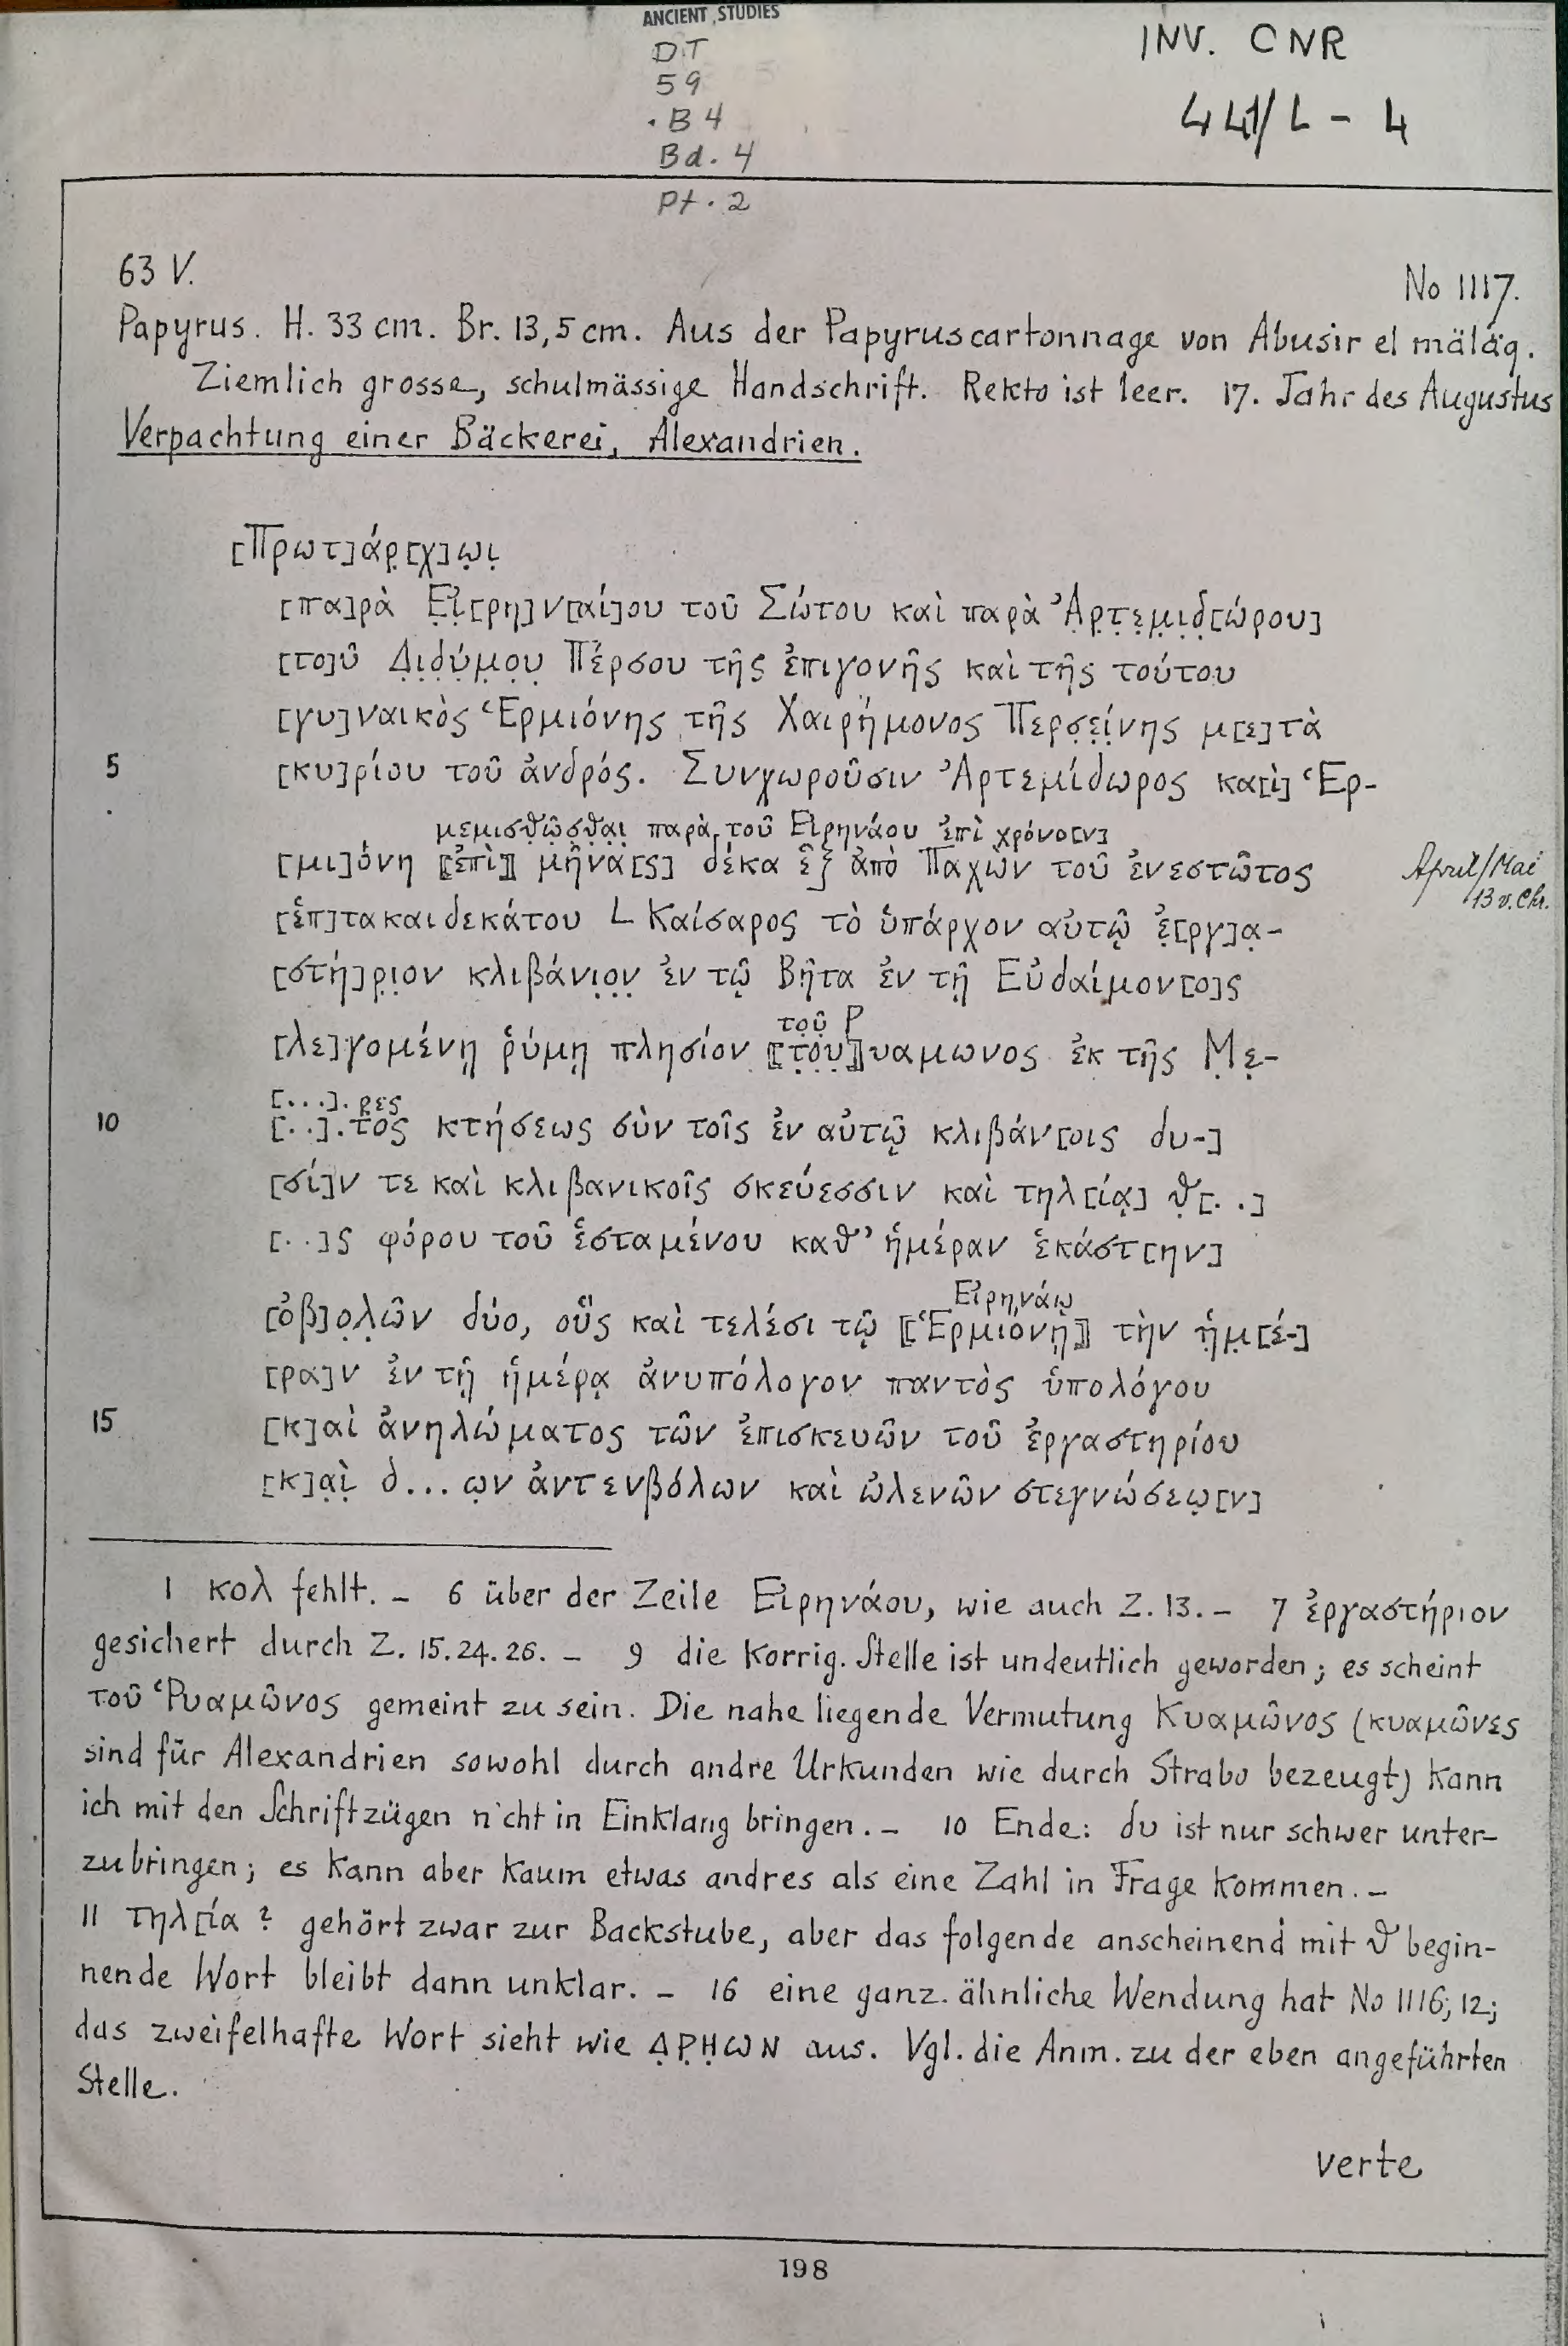 ANCIENT STUDIES
DT
59
.B4
Bd. 4
Pt. 2
INV. CNR
441/L - 4
63 V.
No 1117.
Papyrus. H. 33 cm. Br. 13,5 cm. Aus der Papyruscartonnage von Abusir el mäläq.
Ziemlich grosse, schulmässige Handschrift. Rekto ist leer. 17. Jahr des Augustus
Verpachtung einer Bäckerei, Alexandrien.
[Πρωτ]άρ̣[χ]ω̣ι̣
[πα]ρὰ Ε̣ἰ̣[ρη]ν[αί]ου τοῦ Σώτου καὶ παρὰ Ἀ̣ρ̣τ̣ε̣μ̣ι̣δ̣[ώρου]
[το]ῦ Δ̣ι̣δ̣ύ̣μ̣ο̣υ̣ Πέρσου τῆς ἐπιγονῆς καὶ τῆς τούτου
[γυ]ναικὸς Ἑρμιόνης τῆς Χαιρήμονος Περσ̣ε̣ί̣νης μ[ε]τὰ
5 [κυ]ρίου τοῦ ἀνδρός. Συνχωροῦσιν Ἀρτεμίδωρος κα[ὶ] Ἑρ-
μεμισθ̣ῶ̣σ̣θ̣α̣ι̣ παρὰ τοῦ Εἰρηνάου ἐπὶ χρόνο[ν]
[μι]όνη ⟦ἐπὶ⟧ μῆνα[ς] δέκα ἓξ ἀπὸ Παχὼν τοῦ ἐνεστῶτος
April/Mai
13 v. Chr.
[ἑπ]τακαιδεκάτου L Καίσαρος τὸ ὑπάρχον αὐτῷ ἐ̣[ργ]α̣-
[στή]ρ̣ι̣ον κλιβάνι̣ο̣ν̣ ἐν τῷ Βῆτα ἐν τῇ Εὐδαίμον[ο]ς
τ̣ο̣ῦ̣ Ρ
[λε]γομένῃ ῥύμῃ πλησίον ⟦τ̣ο̣υ̣⟧υαμωνος ἐκ τῆς Μ̣ε̣-
[...].ρ̣ες
10 [..].τος κτήσεως σὺν τοῖς ἐν αὐτῷ κλιβάν[οις δυ-]
[σί]ν τε καὶ κλιβανικοῖς σκεύεσσιν καὶ τηλ[ίᾳ] θ̣[..]
[..]ς φόρου τοῦ ἑσταμένου καθ’ ἡμέραν ἑκάστ[ην]
Εἰρηνάῳ
[ὀβ]ο̣λ̣ῶν δύο, οὓς καὶ τελέσι τῷ ⟦Ἑρμιόνῃ⟧ τὴν ἡ̣μ̣[έ-]
[ρα]ν ἐν τῇ ἡμέρᾳ ἀνυπόλογον παντὸς ὑπολόγου
15 [κ]αὶ ἀνηλώματος τῶν ἐπισκευῶν τοῦ ἐργαστηρίου
[κ]α̣ὶ̣ δ...ω̣ν ἀντενβόλων καὶ ὠλενῶν στεγνώσεω̣[ν]
1 κολ fehlt. – 6 über der Zeile Εἰρηνάου, wie auch Z. 13. – 7 ἐργαστήριον
gesichert durch Z. 15.24.26. – 9 die korrig. Stelle ist undeutlich geworden; es scheint
τοῦ Ῥυαμῶνος gemeint zu sein. Die nahe liegende Vermutung Κυαμῶνος (κυαμῶνες
sind für Alexandrien sowohl durch andre Urkunden wie durch Strabo bezeugt) kann
ich mit den Schriftzügen nicht in Einklang bringen. – 10 Ende: δυ ist nur schwer unter-
zubringen; es kann aber kaum etwas andres als eine Zahl in Frage kommen. –
11 τηλ[ία? gehört zwar zur Backstube, aber das folgende anscheinend mit θ begin-
nende Wort bleibt dann unklar. – 16 eine ganz ähnliche Wendung hat No 1116, 12;
das zweifelhafte Wort sieht wie Δ̣Ρ̣Η̣ωΝ aus. Vgl. die Anm. zu der eben angeführten
Stelle.
verte
198